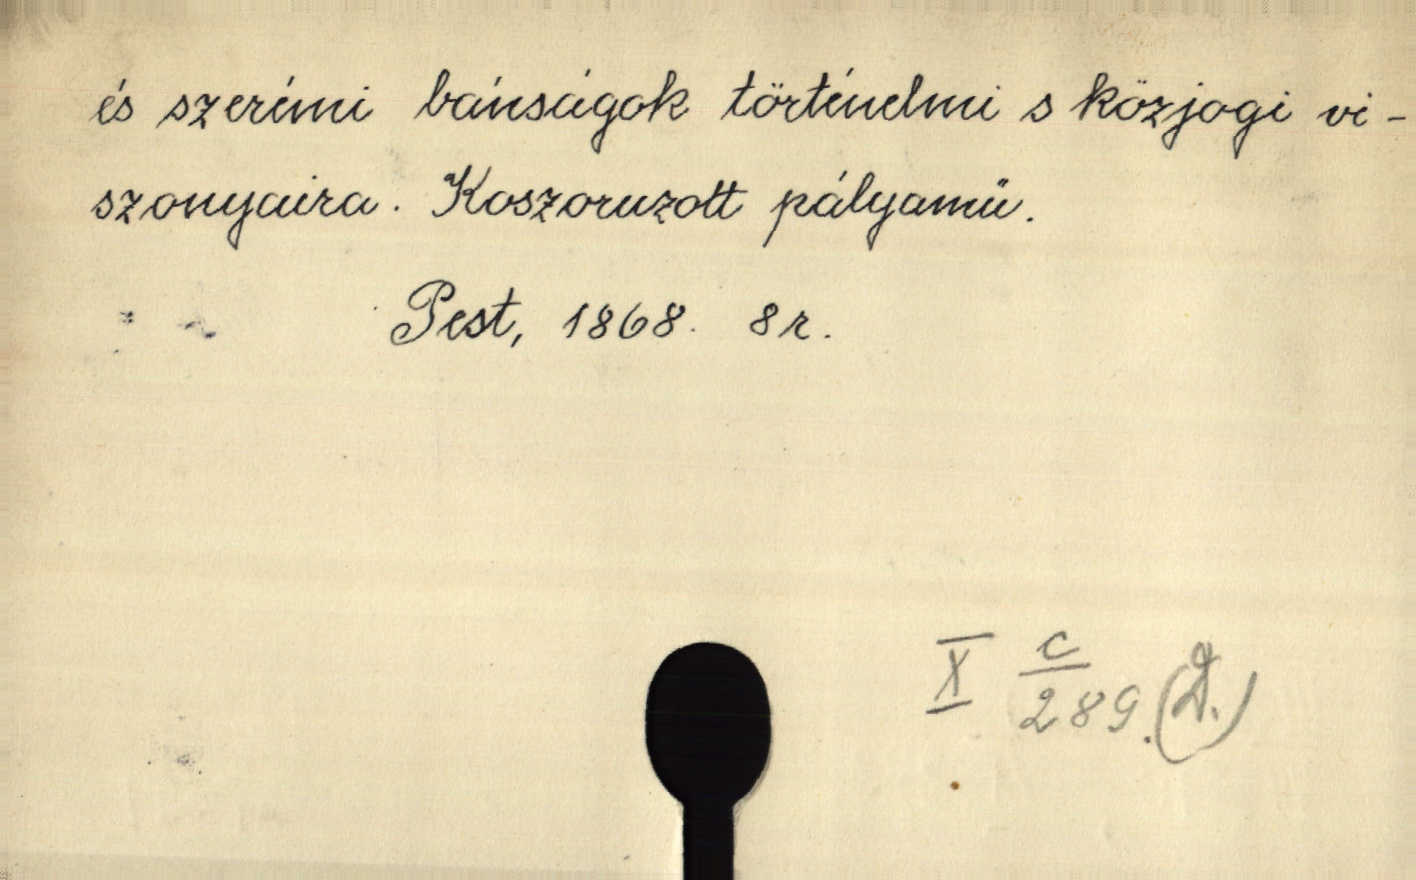 és szerémi bánságok történelmi s közjogi vi-
szonyaira. Koszoruzott pályamű.
Pest, 1868. 8r.
X c
289. (D.)